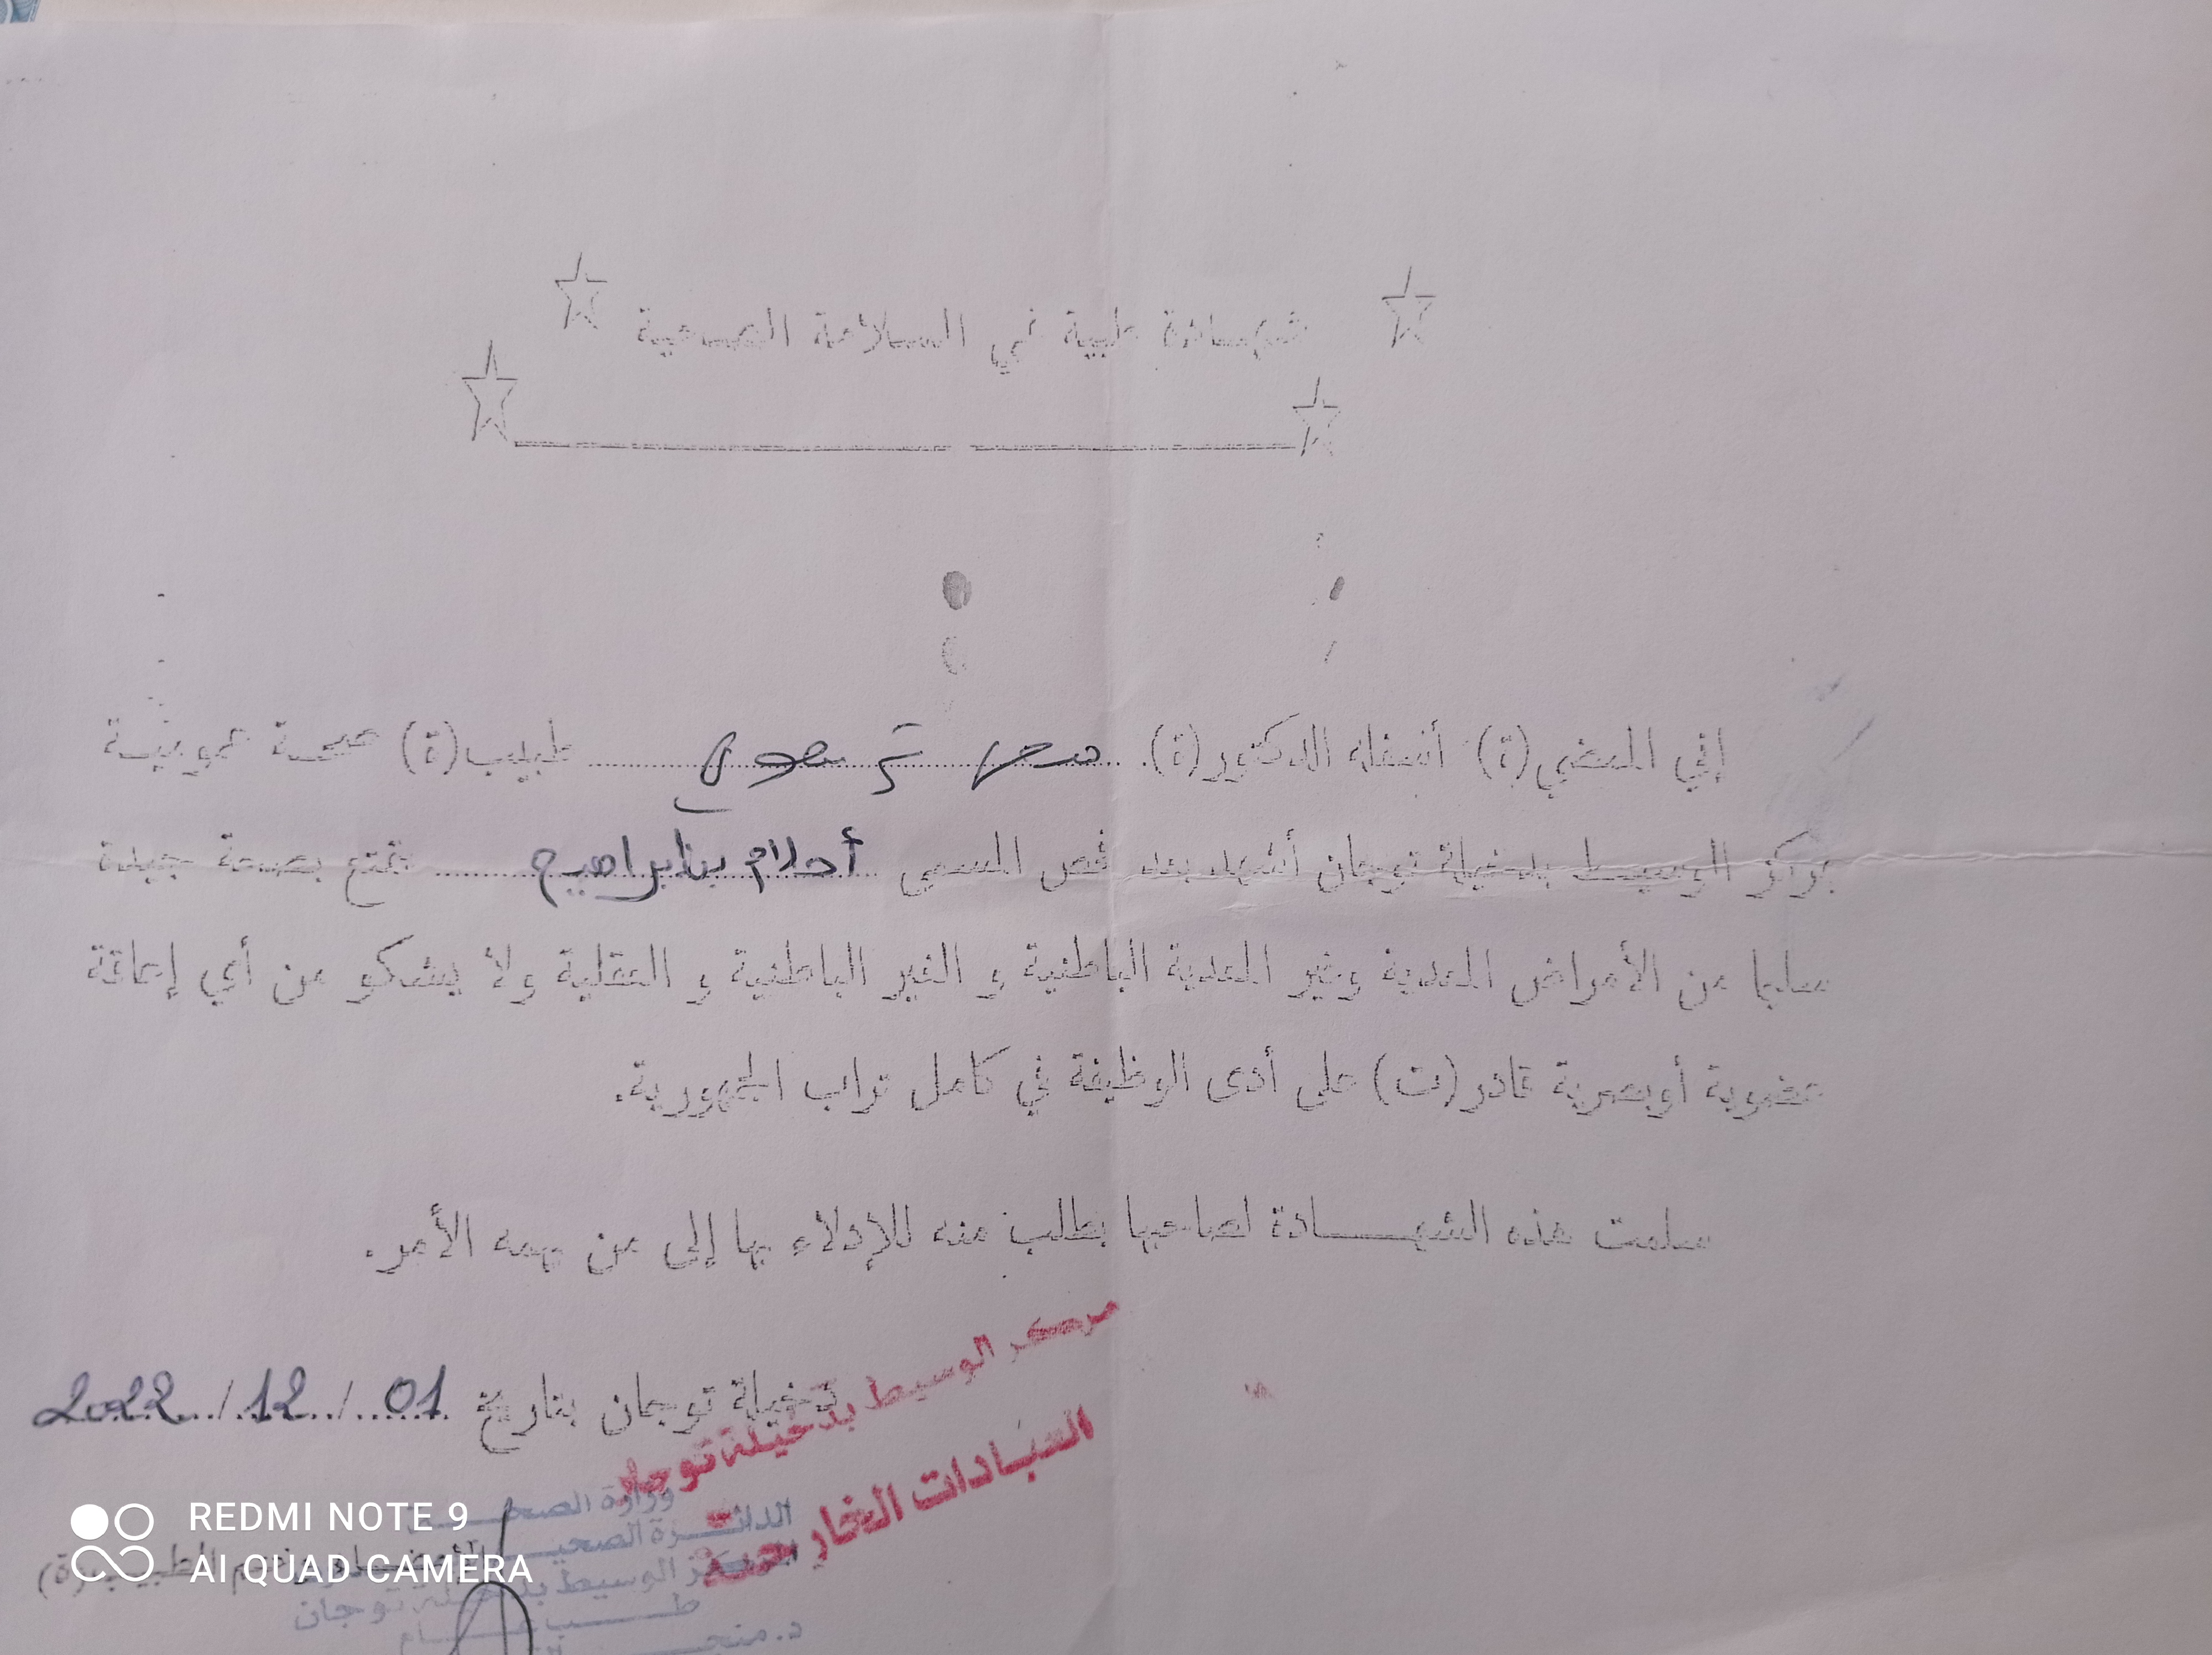 شهادة طبية في السلامة الصحية
إني الممضي (ة) أسفله الدكتور(ة) طبيب(ة) صحة عمومية
بمركز الوسيط بدخيلة توجان أشهد بعد فحص المسمى أحلام بنابراهيم تمتع بصحة جيدة
سليما من الأمراض المعدية وغير المعدية الباطنية و الغير الباطنية و العقلية ولا يشكو من أي إعاقة
عضوية أوبصرية قادر(ت) على أدى الوظيفة في كامل تراب الجمهورية.
سلمت هذه الشهـــادة لصاحبها بطلب منه للإدلاء بها إلى من يهمه الأمر.
مركز الوسيط بدخيلة توجان
دخيلة توجان بتاريخ 01/12/2022
العيادات الخارجية
وزارة الصحـــة
الدائـــرة الصحيـــة
الوسيط بدخيلة توجان
طـــب عـــام
د. منجـــي
الطبيب(ة)
REDMI NOTE 9
AI QUAD CAMERA